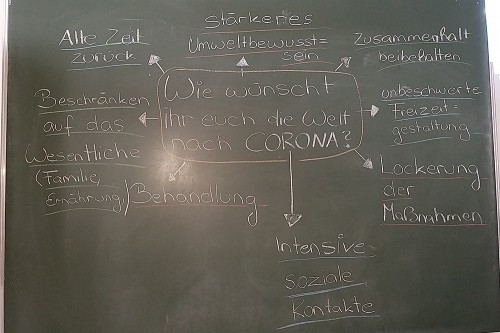 stärkeres
Umweltbewusst=
sein
Alte Zeit
zurück
Zusammenhalt
beibehalten
Wie wünscht
ihr euch die Welt
nach CORONA?
Beschränken
auf das
Wesentliche
(Familie,
Ernährung)
unbeschwerte
Freizeit=
gestaltung
Behandlung
Lockerung
der
Maßnahmen
Intensive
soziale
Kontakte